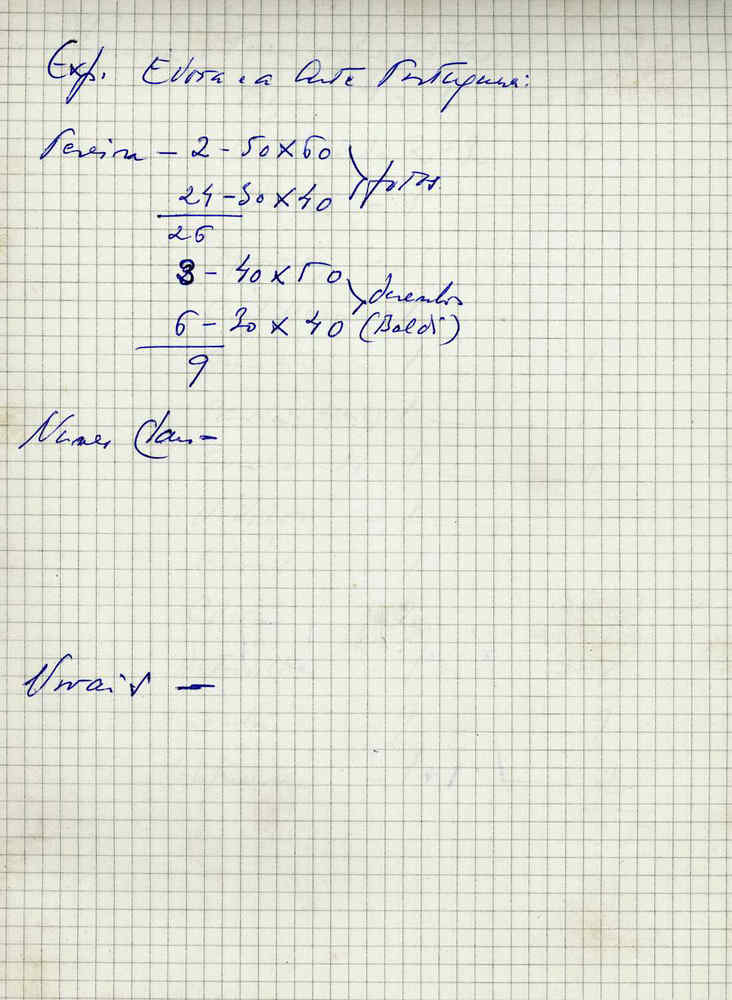 Exp. Evora e a Arte Portuguesa:
Pereira - 2 - 50 x 60
fotos
24 - 30 x 40
26
3 - 40 x 50
desenhos
6 - 30 x 40 (Baldi)
9
Nunes Claro -